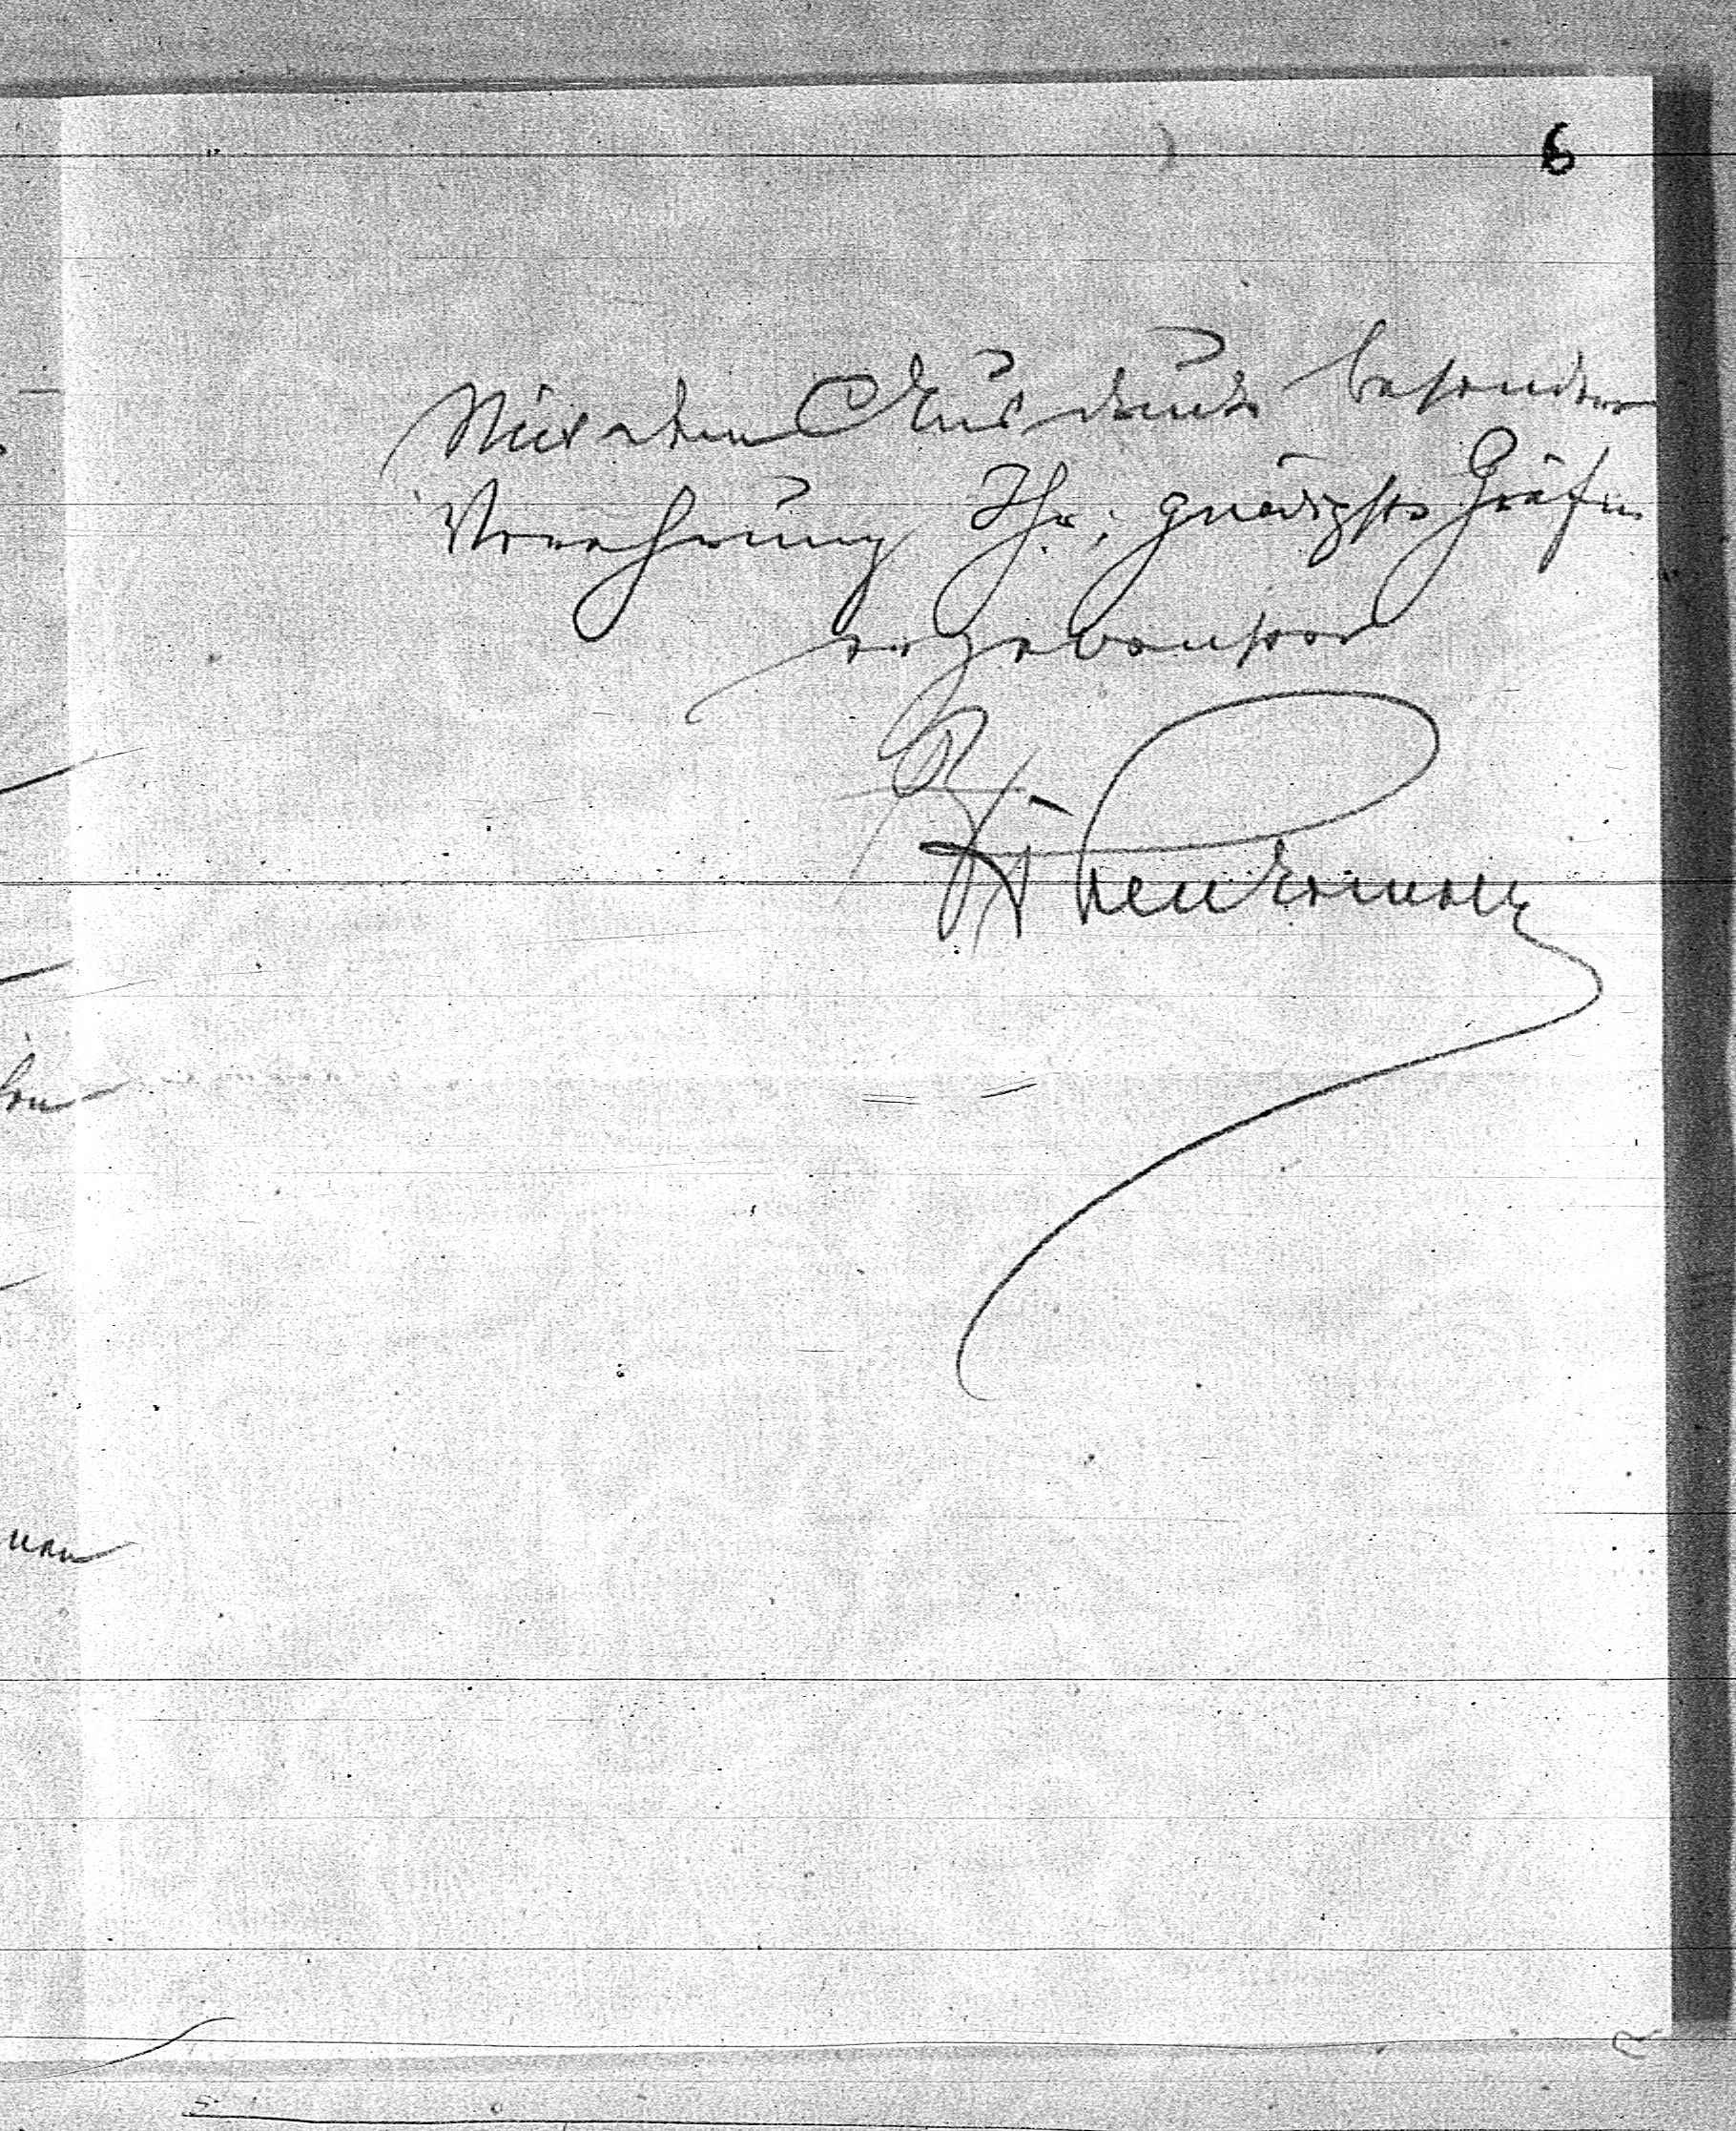 6
Mit dem Ausdruck besonderer
Verehrung Ihr, gnädigste Gräfin
ergebenster